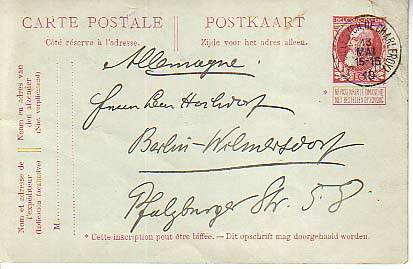 CARTE POSTALE POSTKAART
Côté réservé à l'adresse. Zijde voor het adres alleen.
CHARLEROY
13
MAI
15-16
10
NE PAS LIVRER LE DIMANCHE
NIET BESTELLEN OP ZONDAG
Allemagne.
Herrn Leon Hochdorf
Berlin-Wilmersdorf
Pfalzburger Str. 58.
Naam en adres van
den afzender
(Niet verplichtend)
Nom et adresse de
l'expéditeur
(Indication facultative)
M
* Cette inscription peut être biffée. — Dit opschrift mag doorgehaald worden.